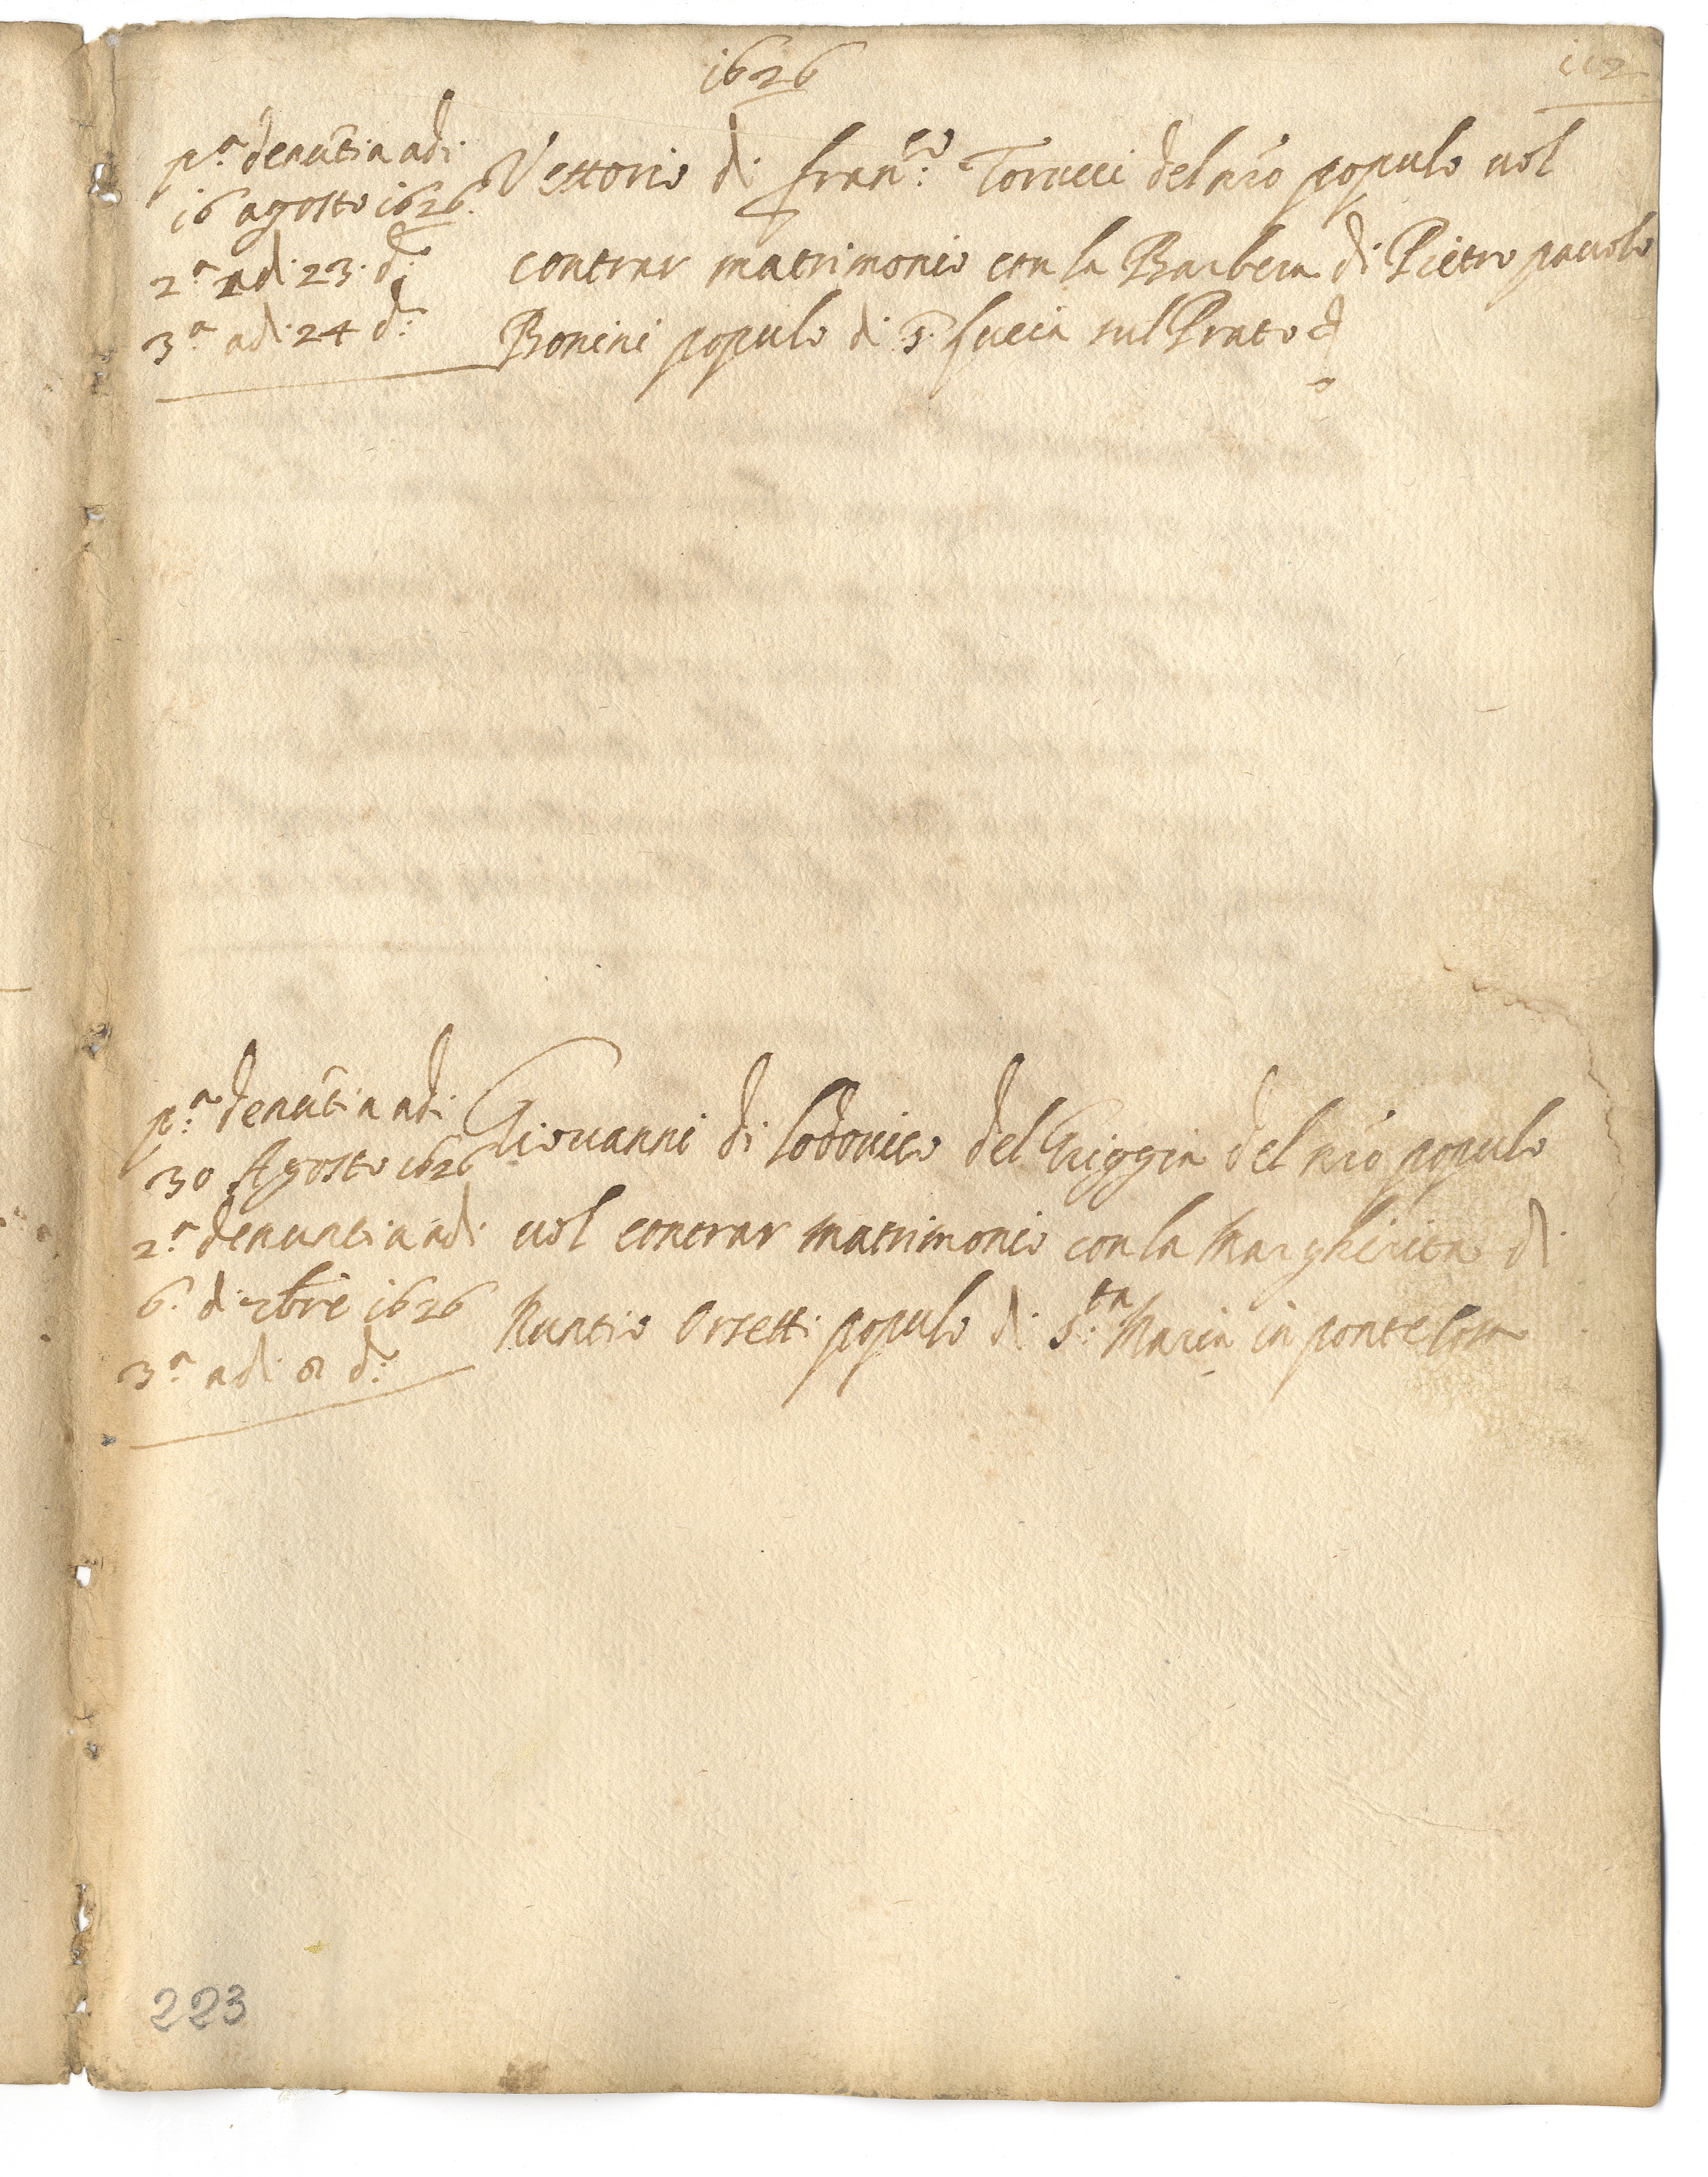 1626
112
p.ª denũtia adi
16 agosto 1626.
2.ª adi 23. d.º
3.ª adi 24 d.º
Vettorio di Fran.co Torucci del nrõ populo uol
contrar matrimonio con la Barbera di Pietro pauolo
Bonini populo di S. Lucia sul Prato
p.ª denũtia adi
30 Agosto 1626
2.ª denuntia adi
6. di 7bre 1626
3.ª adi 8 d.º
Giouanni di Lodouico del Griggia del nrõ populo
uol contrar matrimonio con la Margherita di
Nuntio Orsetti populo di S.ta Maria in
223